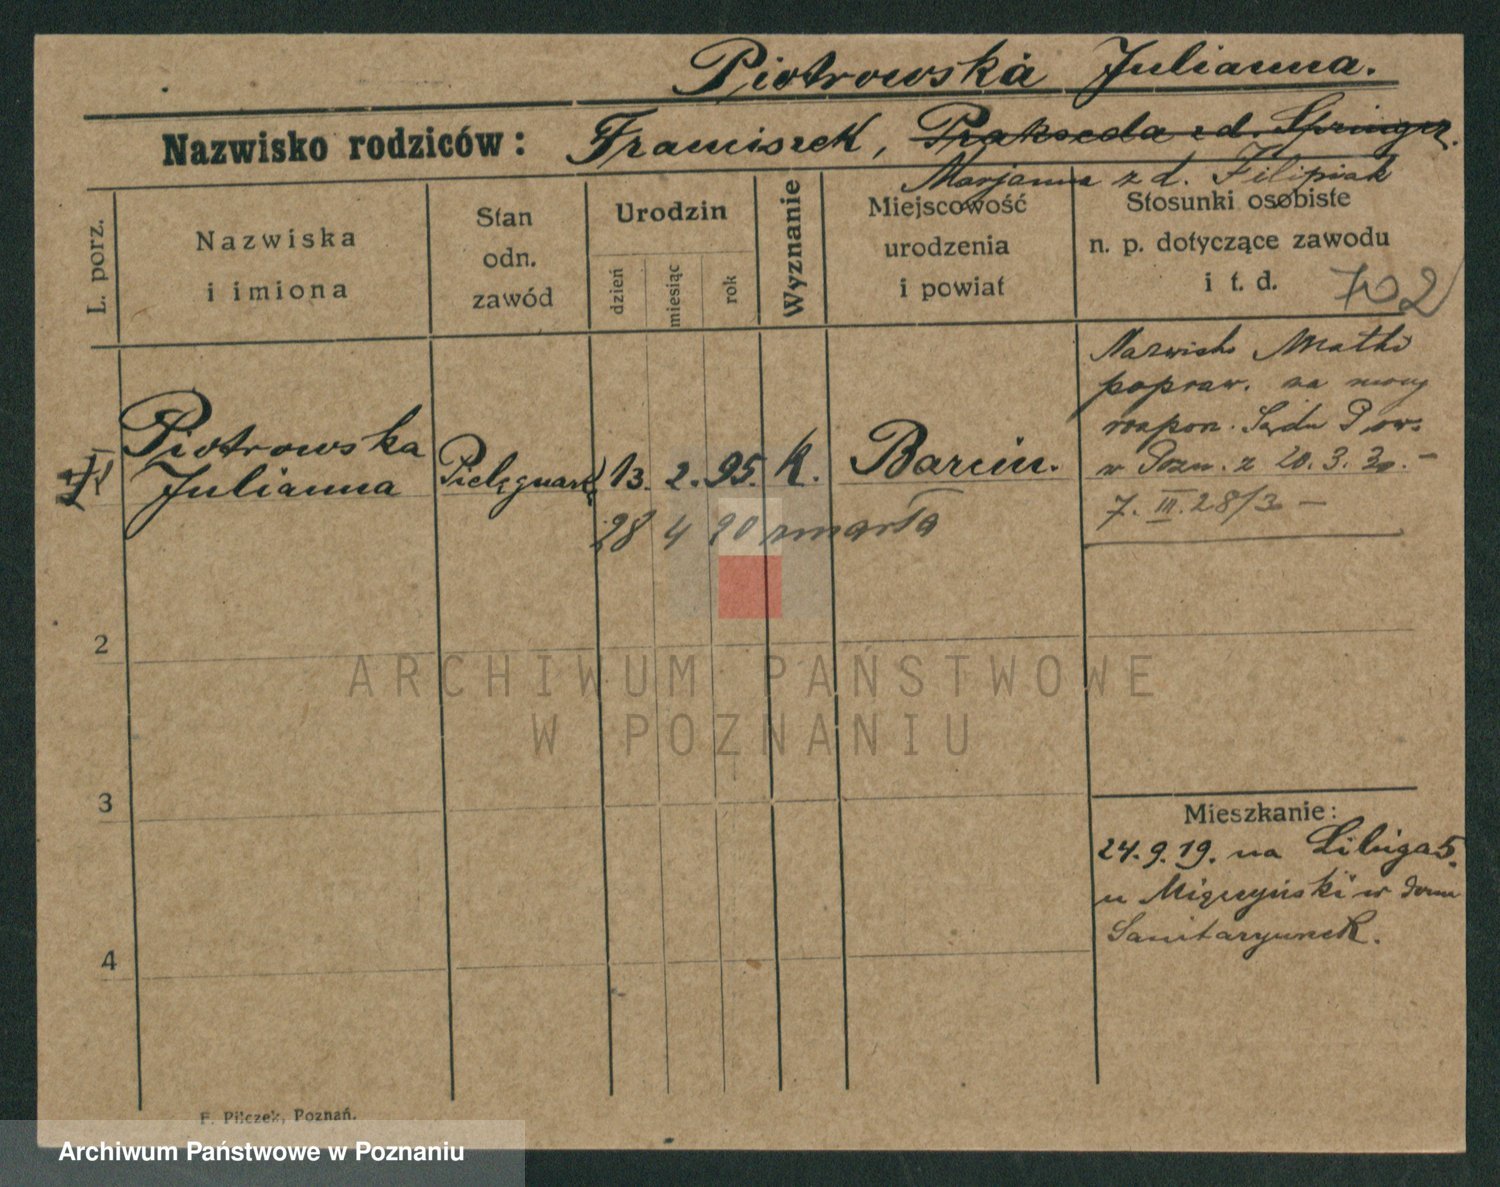 Piotrowska Julianna.
Nazwisko rodziców: Franciszek, Prakseda z d. Springer.
Marjanna z d. Filipiak
L. porz.
Nazwiska
i imiona
Stan
odn.
zawód
Urodzin
dzień
miesiąc
rok
Wyznanie
Miejscowość
urodzenia
i powiat
Stosunki osobiste
n. p. dotyczące zawodu
i t. d.
702
Nazwisko Matki
popraw. na mocy
rozpor. Sądu Pow.
w Pozn. z 20. 3. 30. -
7. III. 28/3 -
Piotrowska
Julianna
Pielęgniark
13. 2. 95. K. Barcin.
28 4 20 zmarła
2
3
4
Mieszkanie:
24. 9. 19. na Libiga 5.
u Mięczyński w domu
Sanitaryunek.
F. Pilczek, Poznań.
ARCHIWUM PAŃSTWOWE
W POZNANIU
Archiwum Państwowe w Poznaniu